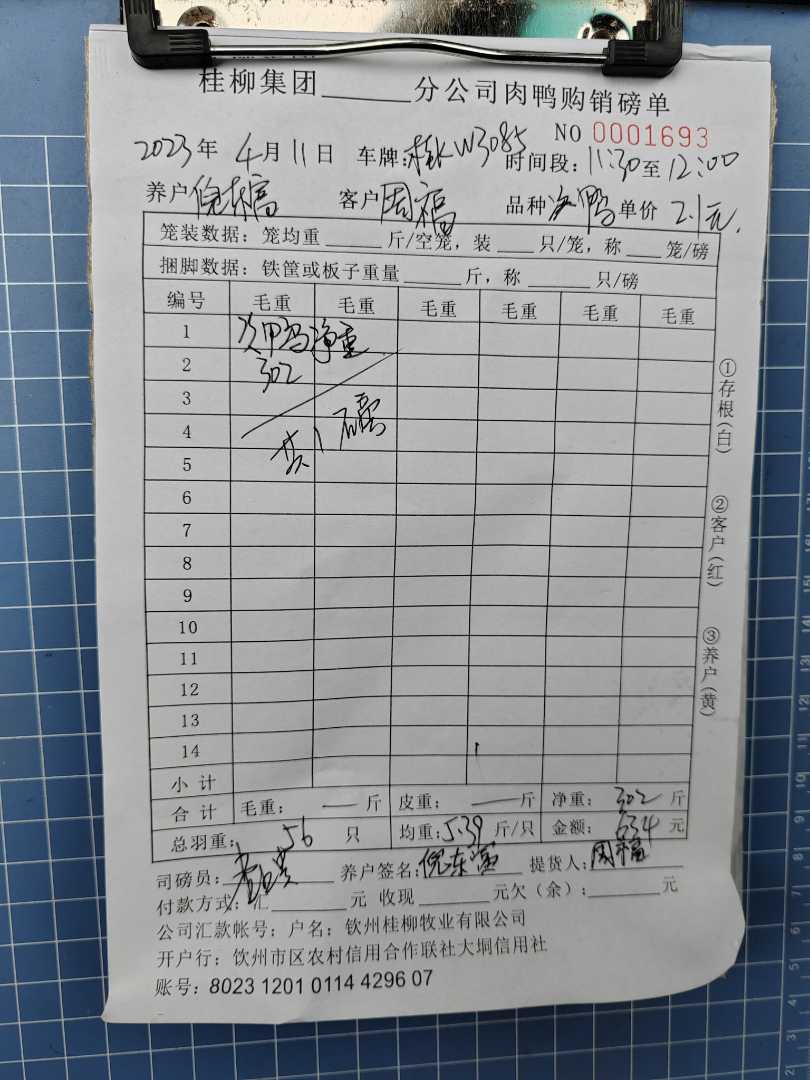 桂柳集团______分公司肉鸭购销磅单
NO 0001693
2023年 4月11日 车牌:桂KW3085 时间段:11:30至12:00
养户 倪东富 客户 周福 品种 鸭 单价 2.1元
笼装数据：笼均重______斤/空笼，装____只/笼，称____笼/磅
捆脚数据：铁筐或板子重量______斤，称______只/磅
编号 毛重 毛重 毛重 毛重 毛重 毛重
1 次甲鸭净重
2 302
3
4 共1磅
5
6
7
8
9
10
11
12
13
14
小计
合计 毛重： — 斤 皮重： — 斤 净重： 302 斤
总羽重： 56 只 均重：5.39 斤/只 金额： 634 元
司磅员： 养户签名：倪东富 提货人：周福
付款方式：汇______元 收现______元欠（余）:______元
公司汇款帐号：户名：钦州桂柳牧业有限公司
开户行：饮州市区农村信用合作联社大垌信用社
账号：8023 1201 0114 4296 07
①存根(白)
②客户(红)
③养户(黄)